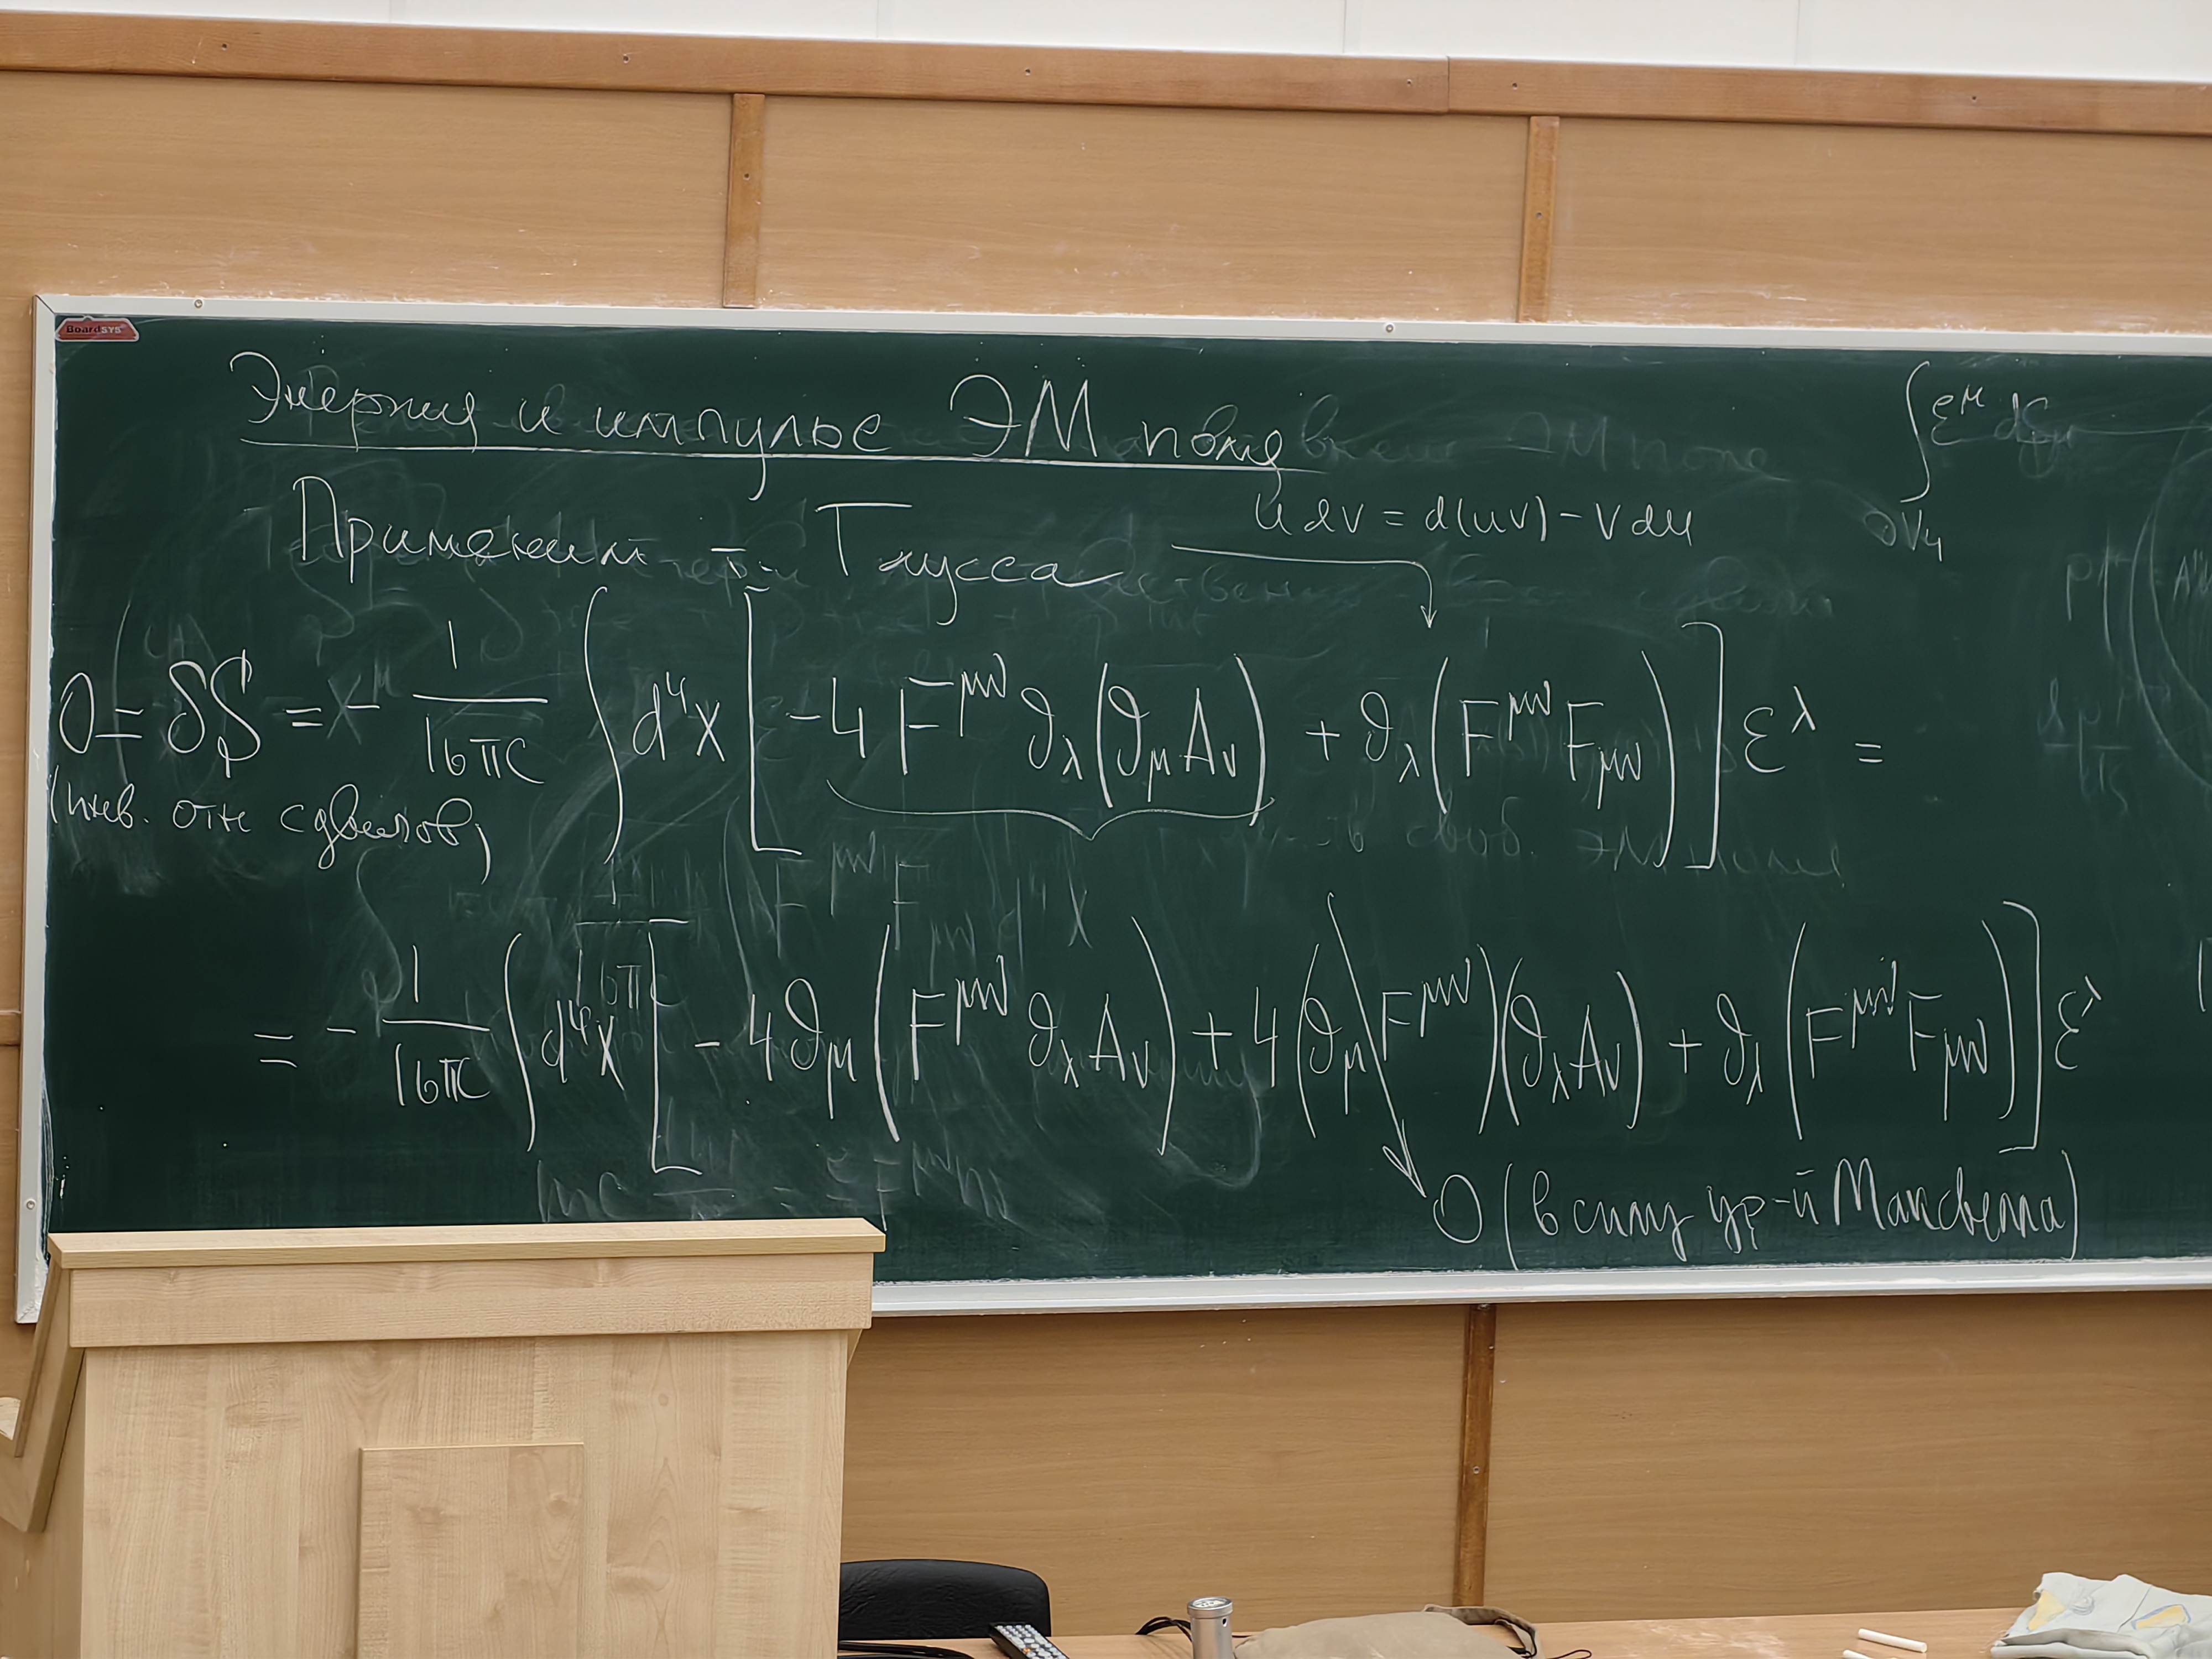 BoardSYS
Энергия и импульс ЭМ поля
Применим т. Гаусса
u dv = d(uv) - v du
∫ ε^μ dS_μ
∂V₄
0 = δS = - 1/(16πc) ∫ d⁴x [ -4 F^{μν} ∂_λ (∂_μ A_ν) + ∂_λ (F^{μν} F_{μν}) ] ε^λ =
(инв. отн сдвигов)
= - 1/(16πc) ∫ d⁴x [ - 4 ∂_μ (F^{μν} ∂_λ A_ν) + 4 (∂_μ F^{μν}) (∂_λ A_ν) + ∂_λ (F^{μν} F_{μν}) ] ε^λ
0 (в силу ур-й Максвелла)